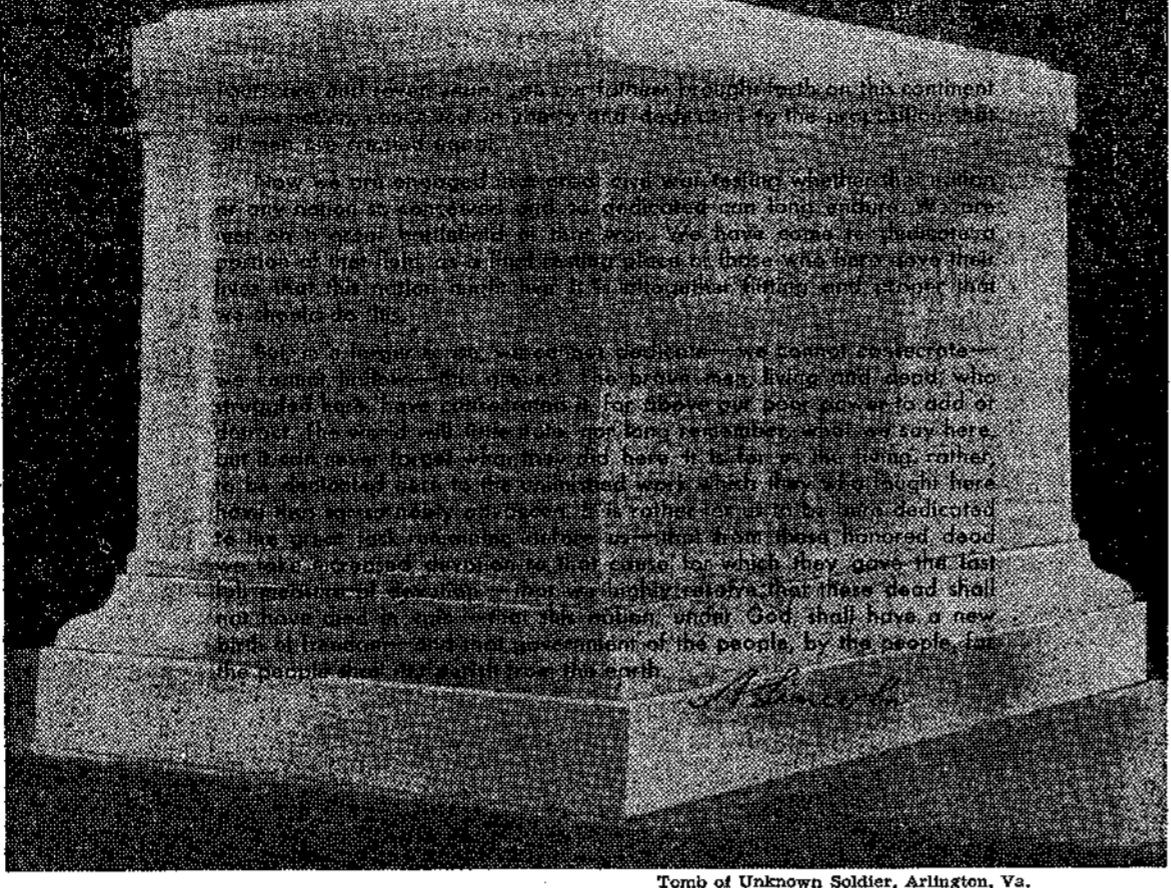 Fourscore and seven years ago our fathers brought forth on this continent
a new nation, conceived in liberty and dedicated to the proposition that
all men are created equal.
Now we are engaged in a great civil war, testing whether that nation
or any nation so conceived and so dedicated can long endure. We are
met on a great battlefield of that war. We have come to dedicate a
portion of that field, as a final resting place of those who here gave their
lives that this nation might live. It is altogether fitting and proper that
we should do this.
But, in a larger sense, we can not dedicate—we cannot consecrate—
we cannot hallow—this ground. The brave men, living and dead, who
struggled here, have consecrated it, far above our poor power to add or
detract. The world will little note, nor long remember, what we say here,
but it can never forget what they did here. It is for us the living, rather,
to be dedicated here to the unfinished work which they who fought here
have thus so nobly advanced. It is rather for us to be here dedicated
to the great task remaining before us—that from these honored dead
we take increased devotion to that cause for which they gave the last
full measure of devotion—that we highly resolve that these dead shall
not have died in vain—that this nation, under God, shall have a new
birth of freedom—and that government of the people, by the people, for
the people shall not perish from the earth.
A. Lincoln
Tomb of Unknown Soldier, Arlington, Va.